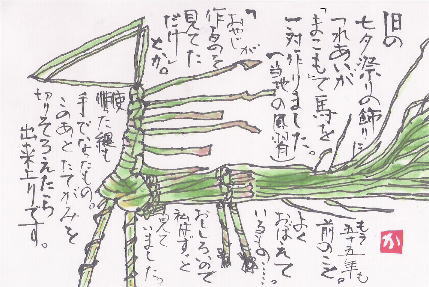 旧の
七夕祭りの飾りに
つれあいが
「まこも」で馬を
一対作りました。
(当地の風習)
「おやじが
作るのを
見てた
だけ」
とか。
もう
五十五年も
前のこと。
よく
おぼえて
いるもの……。
おもしろいので
私はずっと
見て
いました。
縄も
手でなったもの。
このあとたてがみを
切りそろえたら
出来上りです。
か